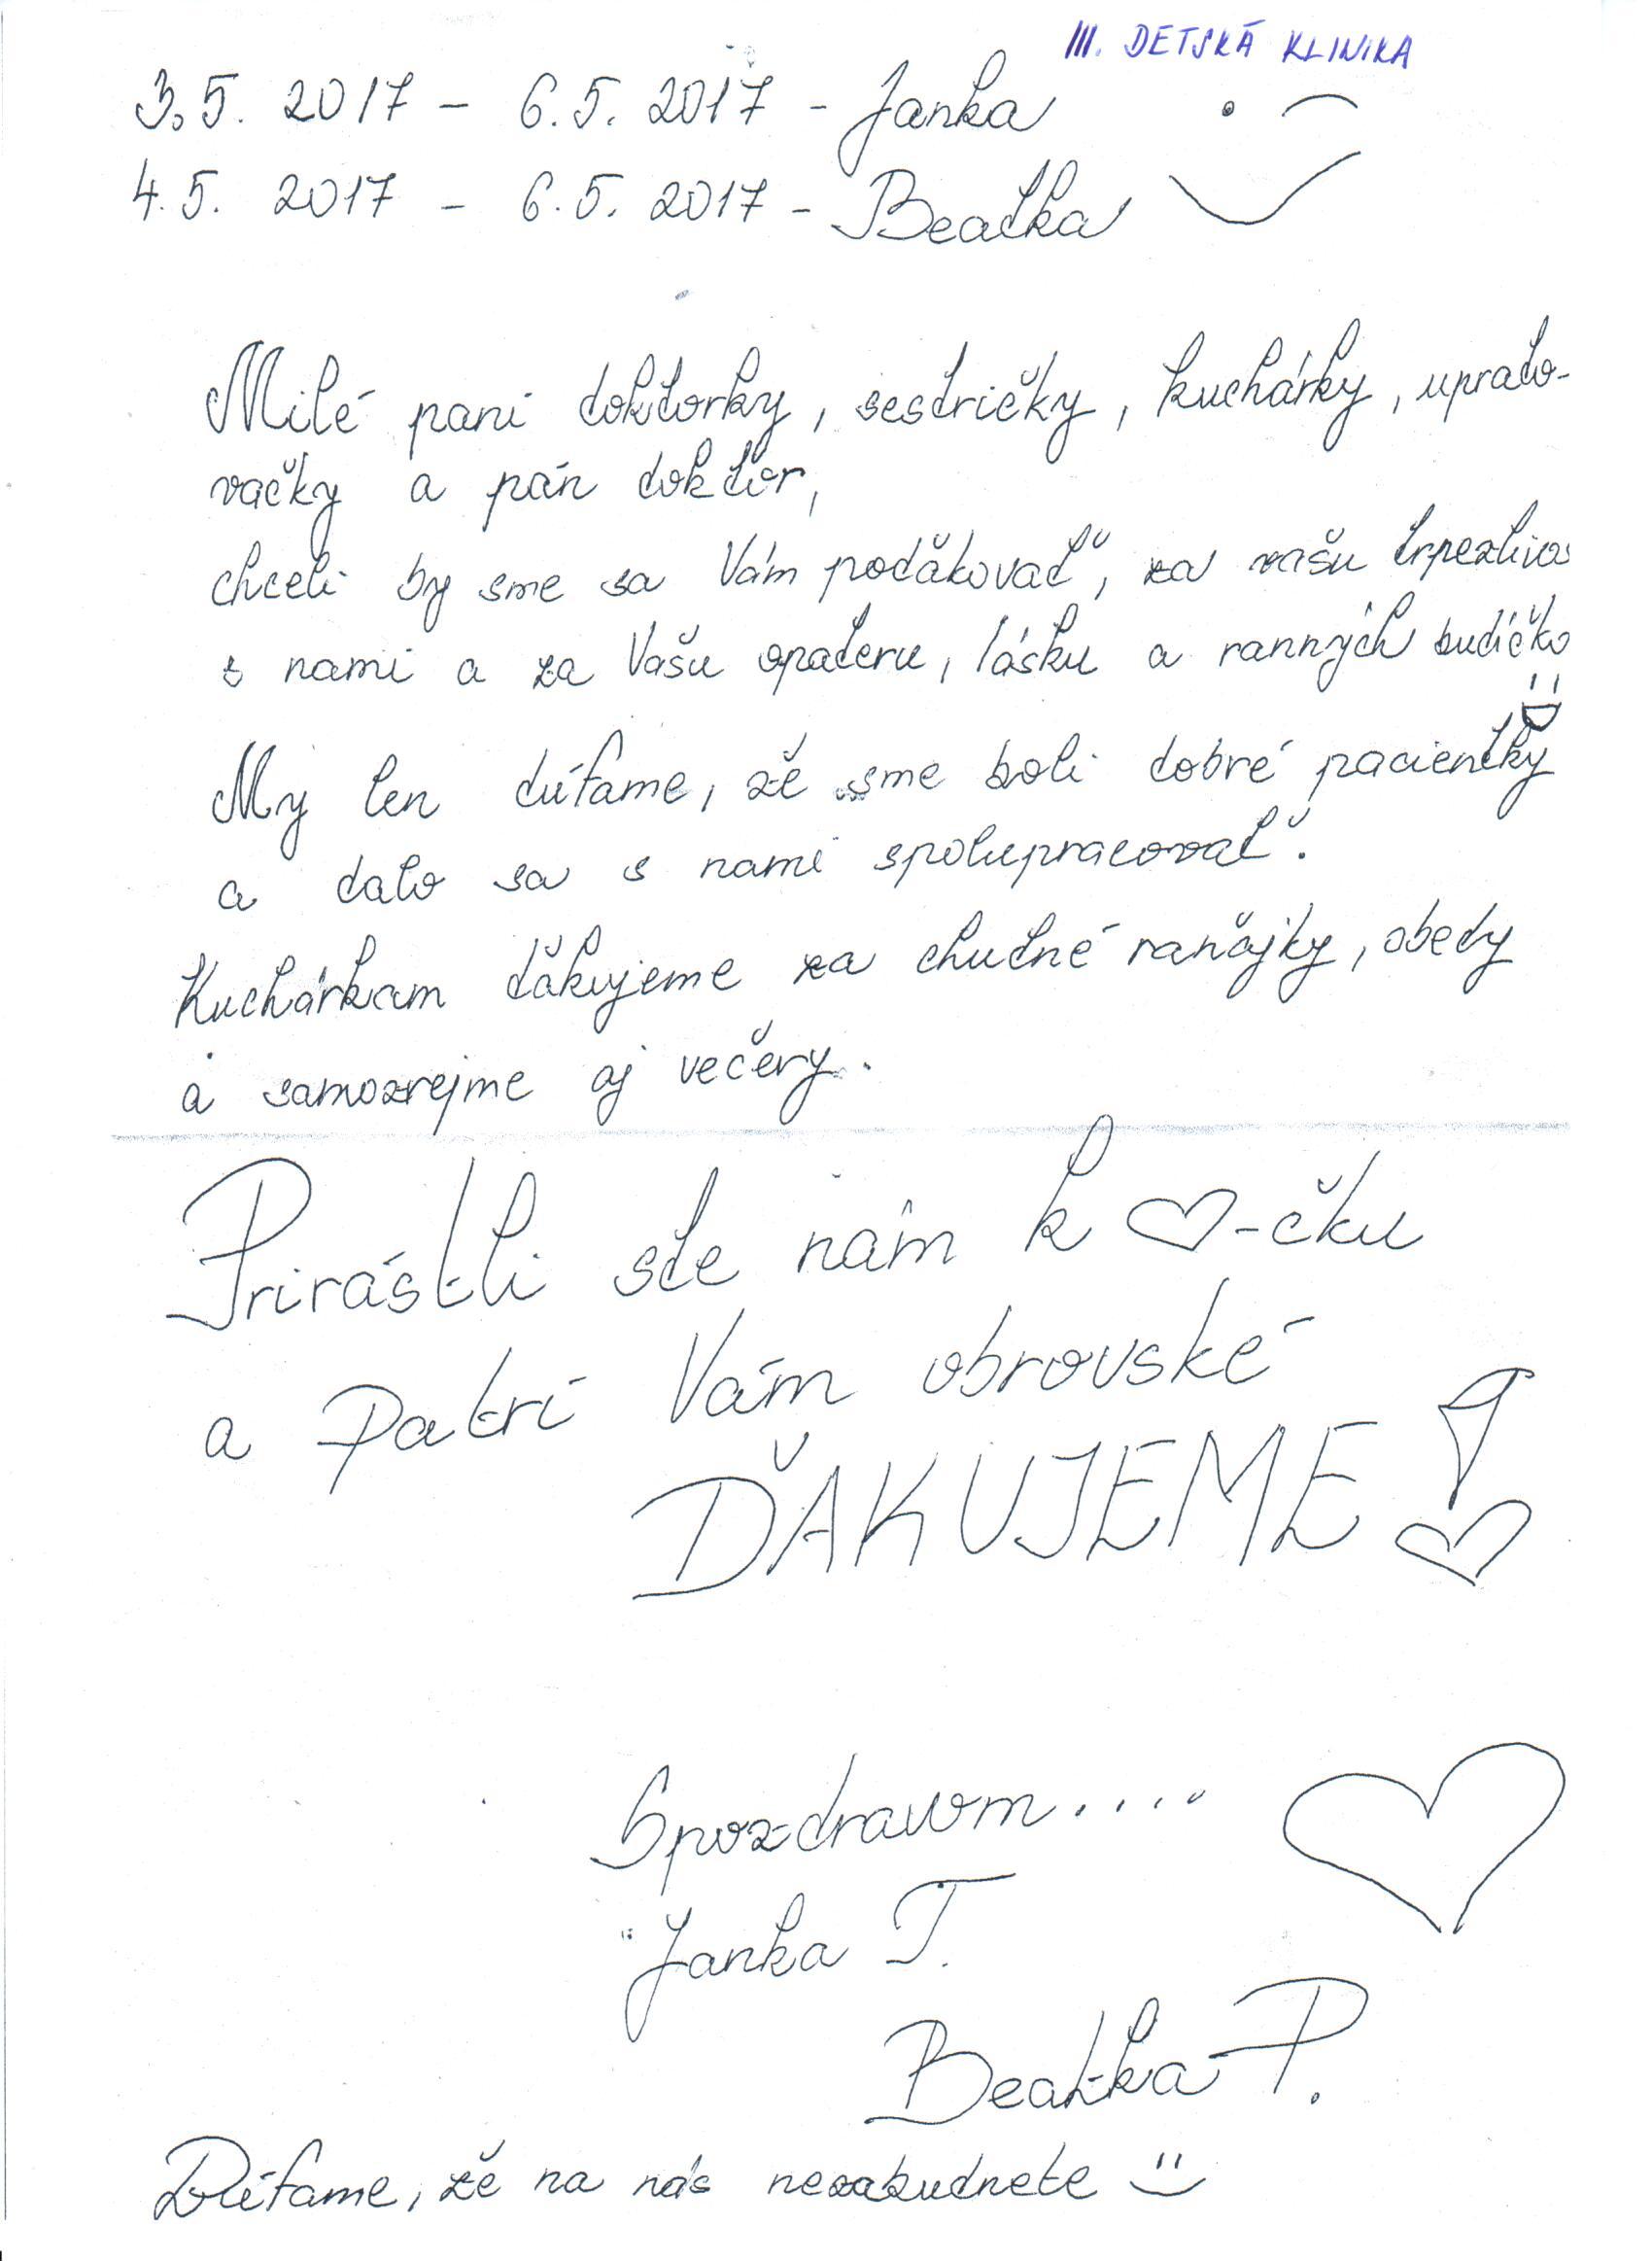 III. DETSKÁ KLINIKA
3.5. 2017 - 6.5. 2017 - Janka
4.5. 2017 - 6.5. 2017 - Beatka
Milé pani doktorky, sestričky, kuchárky, uprato-
vačky a pán doktor,
chceli by sme sa Vám poďakovať, za vašu trpezlivos
s nami a za Vašu opateru, lásku a ranných budíčko
My len dúfame, že sme boli dobré pacientky
a dalo sa s nami spolupracovať.
Kuchárkam ďakujeme za chutné raňajky, obedy
a samozrejme aj večery.
Prirástli ste nám k ♡-čku
a Patrí Vám obrovské
ĎAKUJEME!
S pozdravom....
Janka T.
Beatka P.
Dúfame, že na nás nezabudnete :)